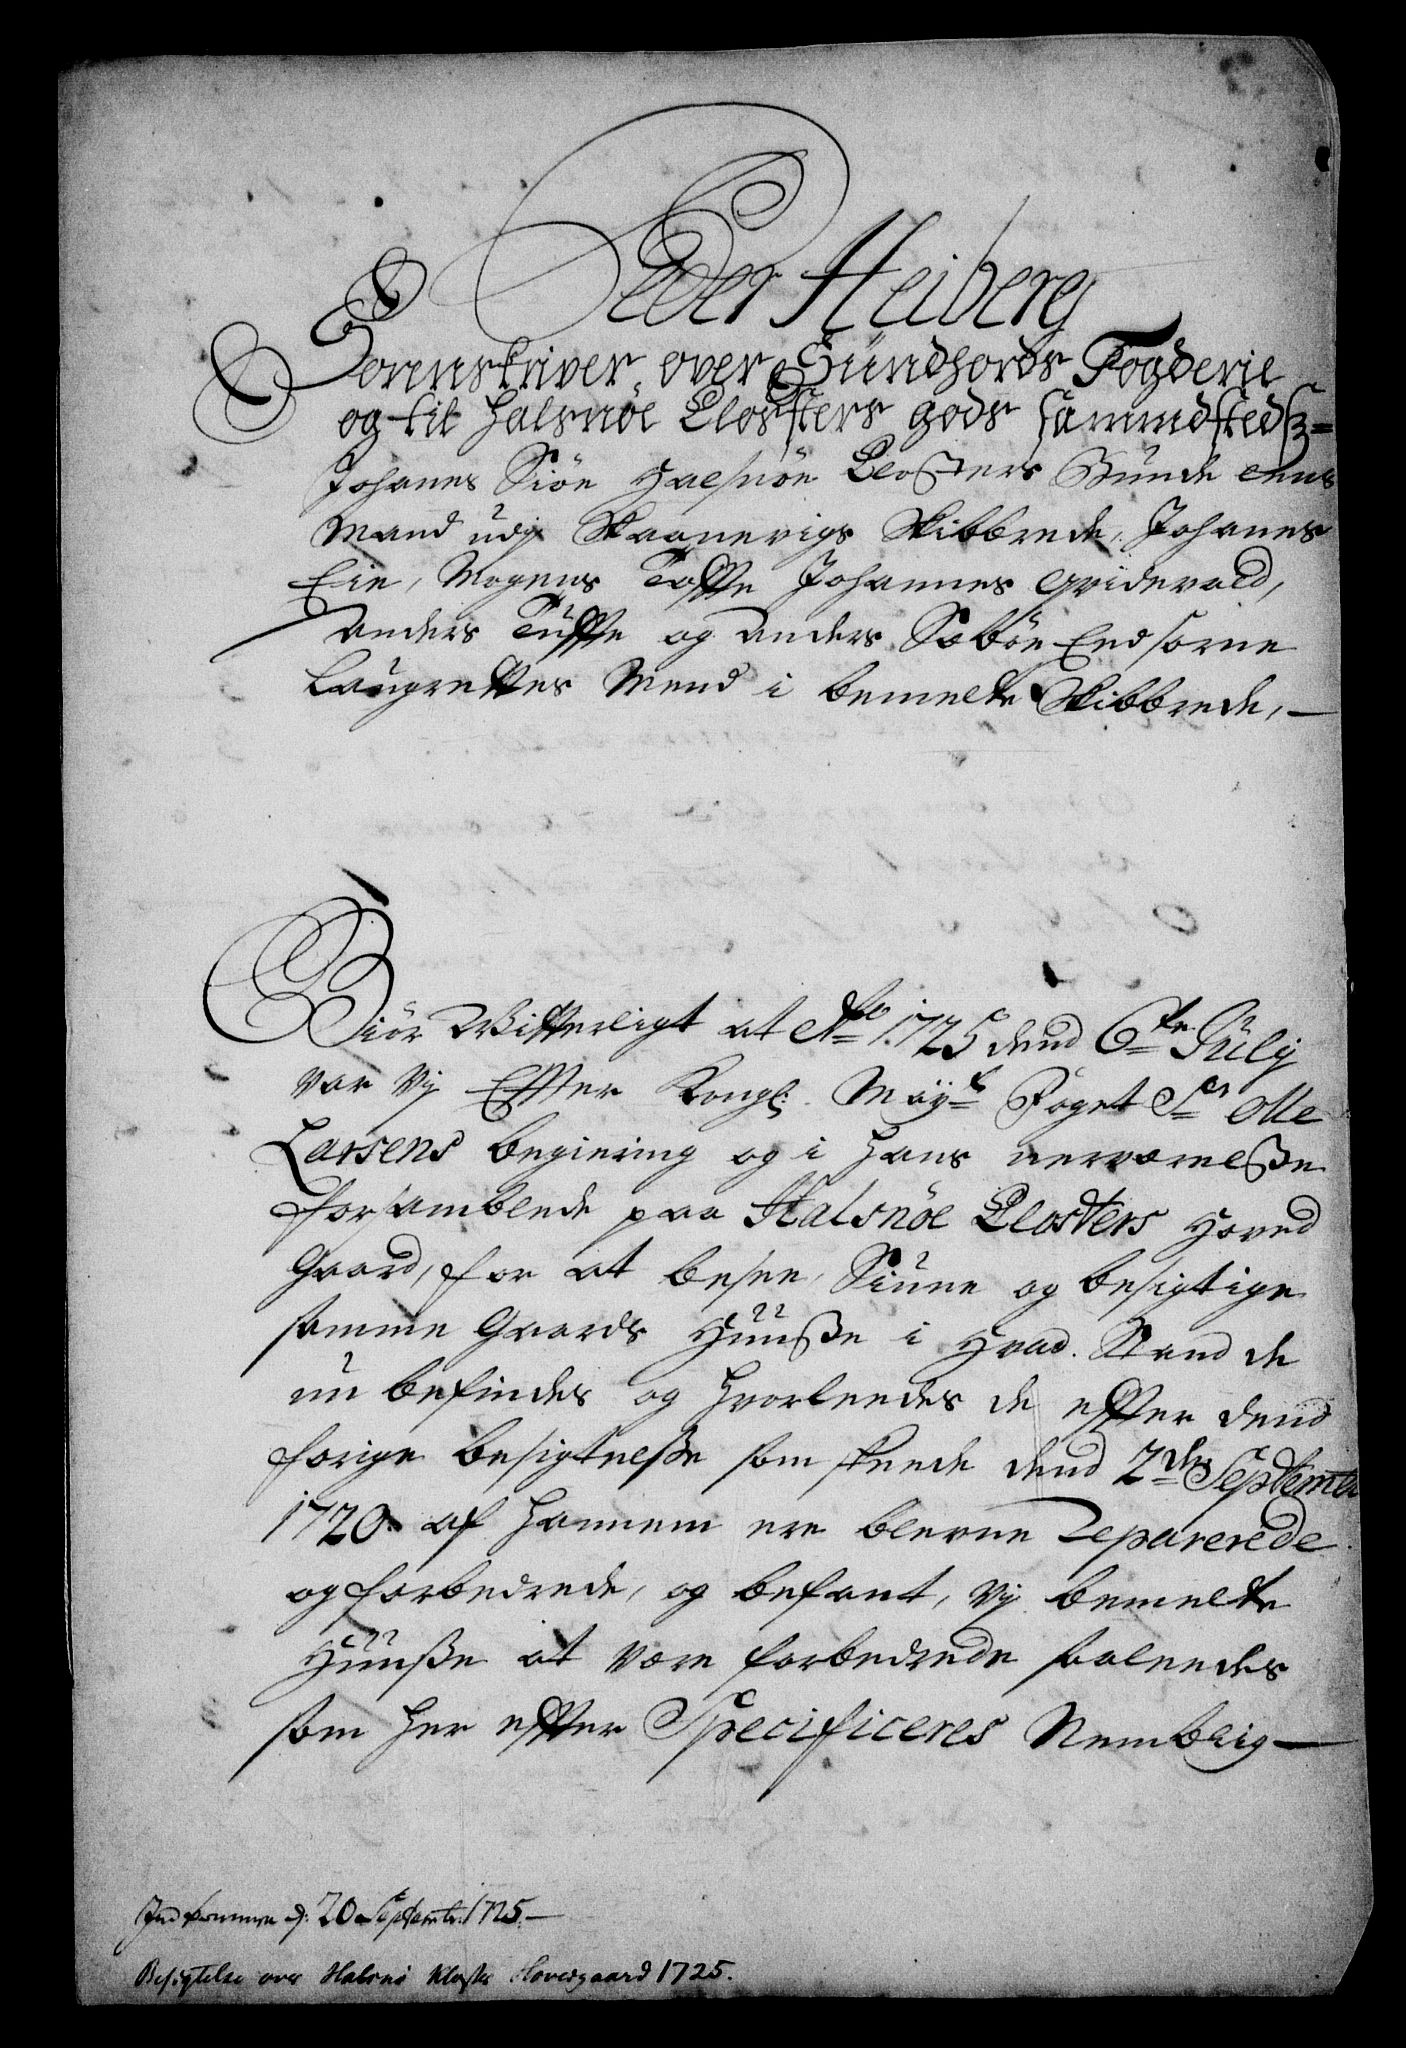 Peder Heiberg
Sorenskriver over Sündhords Fogderie
og til Halsnöe Closters gods sammestedsz=
Johanes Siöe Halsnöe Closters Bünde lens
Mand udj Skaanevigs Skibbrede, Johanes
Eie, Mogens Toffte Johannes Qvidevold,
Anders Tüffte og Anders Sæböe Eedsorne
Laugrettes Mend i bemelte Skibbrede, —
Giör Witterligt at Ao 1725 dend 6te Július
var Vj Effter Kongl: Mayts Foget Sr Olle
Larsens begiering og i hans nerværelsse
forsamblede paa Halsnöe Closters Hoved
Gaard, for at besee, Siune og besigtige
samme Gaards Huusse i Hvad Stand de
nu befindes og hvorleedes de effter dend
forige besigtelsse som skeede dend 2den Septembr
1720 af hannem ere blevne Reparerede
og forbedrede, og befant, Vj bemelte
Huusse at være forbedrede saaleedes
som her effter Specificeres Nemblig —
Indkommen d: 20 Septembr: 1725. —
Besigtelse over Halsnö Kloster Hovedgaard 1725.